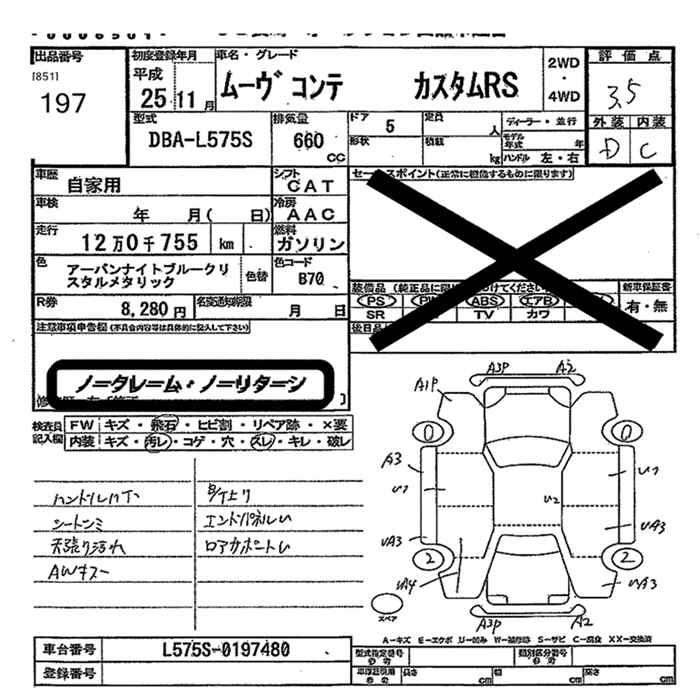 出品番号
[851]
197
初度登録年月
平成
25年11月
車名・グレード
ムーヴ コンテ カスタムRS
2WD
・
4WD
評価点
3.5
外装 内装
D C
型式
DBA-L575S
排気量
660
CC
ドア 5
形状
定員 人
積載 kg
ディーラー・並行
モデル年式 年
ハンドル 左・右
車歴
自家用
シフト
CAT
セールスポイント(正常に稼働するものに限ります)
車検
年 月( 日)
冷房
AAC
走行
12万0千755 km
燃料
ガソリン
色
アーバンナイトブルークリ
スタルメタリック
色替
色コード
B70
装備品
新車保証書
有・無
PS ABS エアB
SR TV カワ
R券
8,280円
名変通知期限
月 日
後日品
注意事項申告欄(不具合内容等は具体的に記入して下さい)
ノークレーム・ノーリターン
検査員
記入欄
FW キズ・飛石・ヒビ割・リペア跡・×要
内装 キズ・汚レ・コゲ・穴・スレ・キレ・破レ
シートシミ
天張り汚れ
AWキズ
エンドパネルU
ロアサポートU
A3P A2
A1P
0 0
A3
U1 U1
U2
UA3 UA3
2 2
UA4 UA3
スペア
A3P A2
A-キズ E-エクボ U-凹み W-補修跡 S-サビ C-腐食 XX-交換済
車台番号 L575S-0197480
登録番号
型式指定番号
類別区分番号
長さ cm 幅 cm 高さ cm